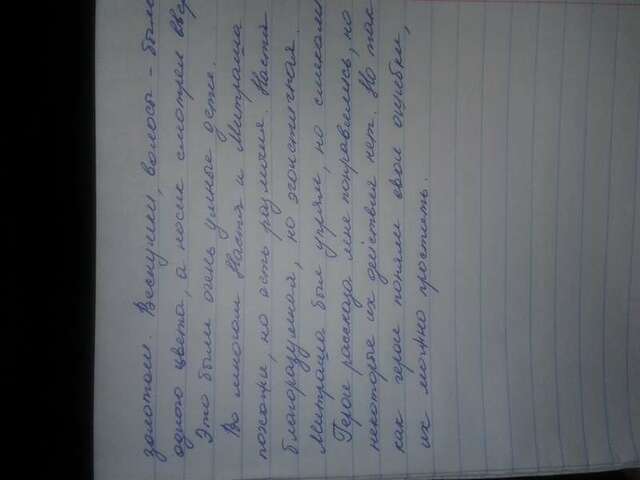 золотом. Веснушки, волосы - было
одного цвета, а носик смотрел ввер
Это были очень умные дети.
Во многом Настя и Митраша
похожи, но есть различия. Настя
благоразумная, но эгоистичная.
Митраша был упрям, но смекали
Герои рассказа мне понравились, но
некоторые их действия нет. Но так
как герои поняли свои ошибки,
их можно простить.